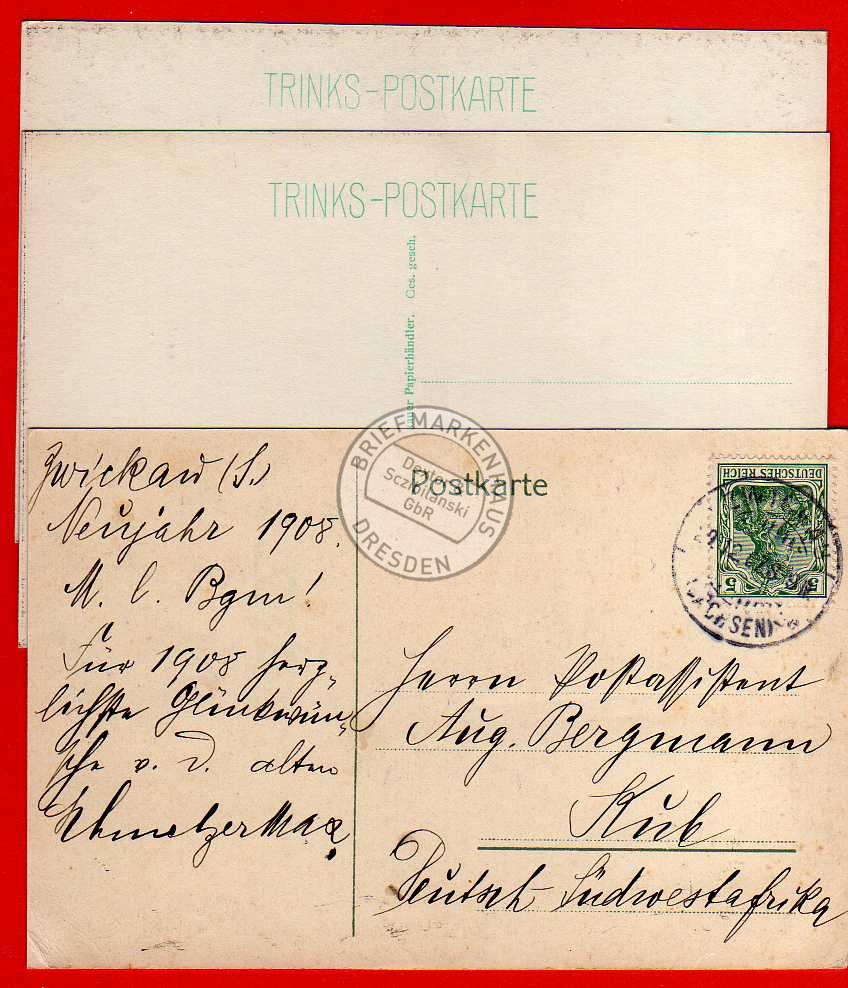 TRINKS-POSTKARTE
TRINKS-POSTKARTE
Papierhändler. Ges. gesch.
Postkarte
Zwickau (S.)
Neujahr 1908.
M. l. Bgm!
Für 1908 herz-
lichste Glückwün-
sche v. d. alten
Max
DEUTSCHES REICH
5 5
(SACHSEN)
Herrn Postassistent
Aug. Bergmann
Kub
Deutsch-Südwestafrika
BRIEFMARKENHAUS
GbR
DRESDEN